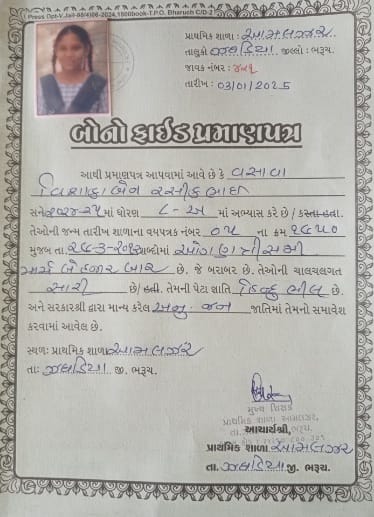 [ Press Opt-V.Jail-88/4)06-2024,1500book-T.P.O. Bharuch C/D-2
પ્રાથમિક શાળા : આમલઝર
તાલુકો ઝઘડિયા જીલ્લો : ભરૂચ.
જાવક નંબર : ૪૨૧
તારીખ : 03/01/2025
બોનોફાઈડ પ્રમાણપત્ર
આથી પ્રમાણપત્ર આપવામાં આવે છે કે વસાવા
વિશાખાબેન રસીકભાઇ
સને ૨૦૨૪-૨૫ માં ધોરણ ૮-અ માં અભ્યાસ કરે છે / કરતા હતા.
તેઓની જન્મ તારીખ શાળાના વયપત્રક નંબર ૦૫ ના ક્રમ ૨૬૫૦
મુજબ તા. ૨૯-૩-૨૦૧૨ શબ્દોમાં ઓગણત્રીસમી
માર્ચ બેહજાર બાર છે. જે બરાબર છે. તેઓની ચાલચલગત
સારી છે/ હતી. તેમની પેટા જ્ઞાતિ હિન્દુ ભીલ છે.
અને સરકારશ્રી દ્વારા માન્ય કરેલ અનુ. જન જાતિમાં તેમનો સમાવેશ
કરવામાં આવેલ છે.
સ્થળ: પ્રાથમિક શાળા આમલઝર
તા: ઝઘડિયા જી. ભરૂચ.
મુખ્ય શિક્ષક
પ્રાથમિક શાળા આમલઝર,
આચાર્યશ્રી,
પ્રાથમિક શાળા આમલઝર
તા. ઝઘડિયા જી. ભરૂચ.